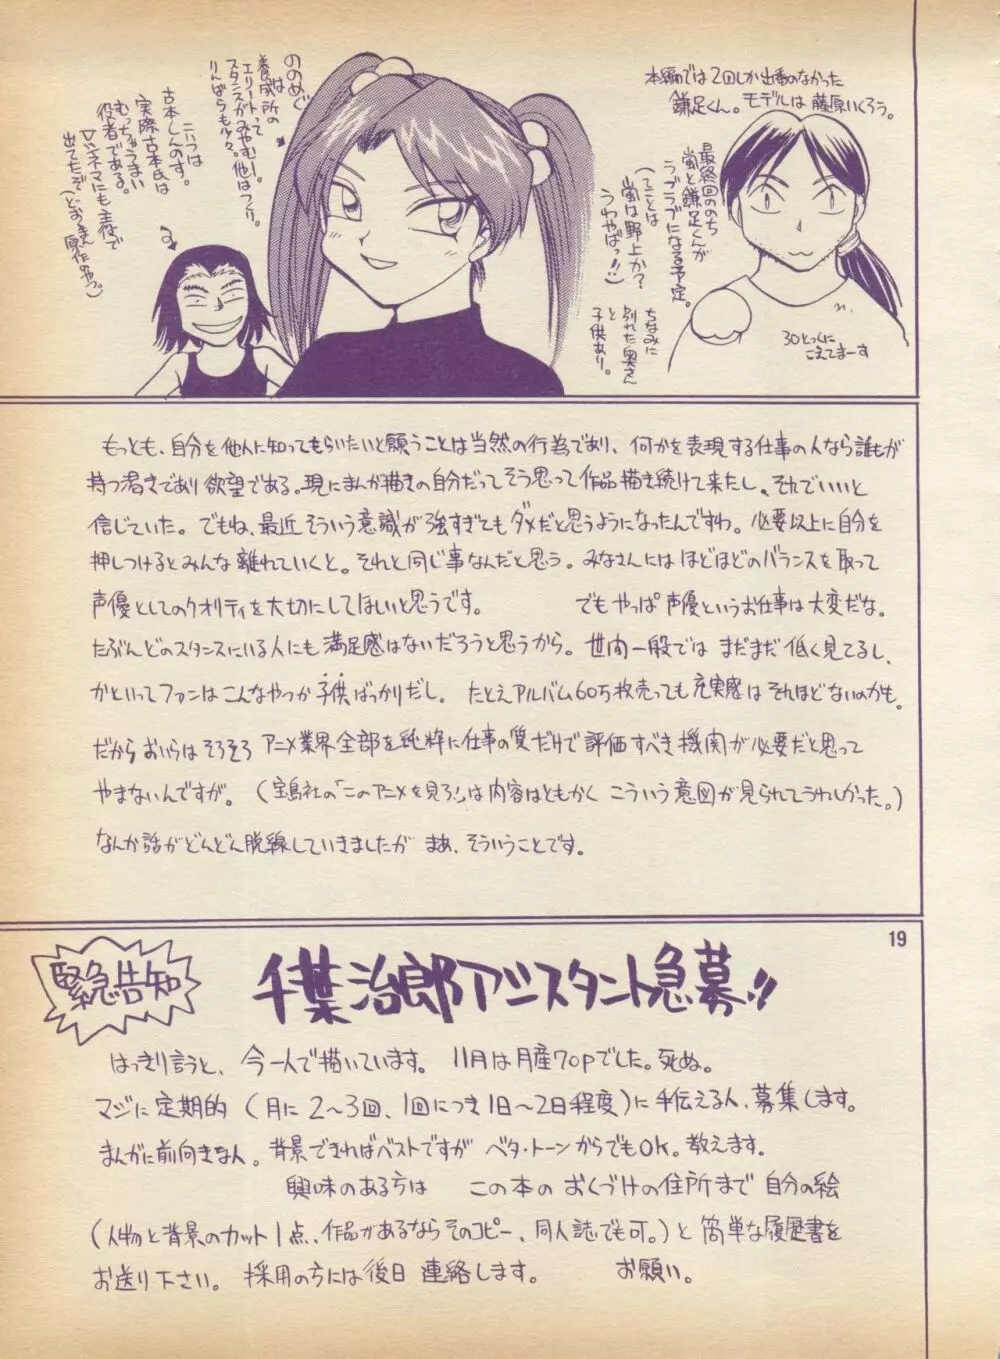 本編では2回しか出番のなかった
鎌足くん。モデルは藤原いくろう。
最終回ののち
嵐と鎌足くんが
ラブラブになる予定。
(てことは
嵐は野上か?
うわやばっ!!)
ちなみに
別れた奥さん
と
子供あり。
30とっくに
こえてまーす
ののめぐ
は
養成所の
エリートって
スタンスがみやむー。他はつくり。
りんばらも少々。
こいつは
古本しんのす。
実際古本氏は
むっちゃうまい
役者である。
Vシネマにも主役で
出てたぞ
もっとも、自分を他人に知ってもらいたいと願うことは当然の行為であり、何かを表現する仕事の人なら誰もが
持つ渇きであり欲望である。現にまんが描きの自分だってそう思って作品描き続けて来たし、それでいいと
信じていた。でもね、最近そういう意識が強すぎてもダメだと思うようになったんですわ。必要以上に自分を
押しつけるとみんな離れていくと。それと同じ事なんだと思う。みなさんにはほどほどのバランスを取って
声優としてのクオリティを大切にしてほしいと思うです。 でもやっぱ声優というお仕事は大変だな。
たぶんどのスタンスにいる人にも満足感はないだろうと思うから。世間一般ではまだまだ低く見てるし、
かといってファンはこんなやつか子供ばっかりだし。たとえアルバム60万枚売っても充実感はそれほどないのかも。
だからおいらはそろそろアニメ業界全部を純粋に仕事の質だけで評価すべき機関が必要だと思って
やまないんですが。(宝島社の「このアニメを見ろ!」は内容はともかくこういう意図が見られてうれしかった。)
なんか話がどんどん脱線していきましたがまあ、そういうことです。
19
緊急告知
千葉治郎アシスタント急募!!
はっきり言うと、今一人で描いています。11月は月産70Pでした。死ぬ。
マジに定期的(月に2〜3回、1回につき1日〜2日程度)に手伝える人、募集します。
まんがに前向きな人。背景できればベストですがベタ・トーンからでもOK。教えます。
興味のある方は この本のおくづけの住所まで自分の絵
(人物と背景のカット1点、作品があるならそのコピー、同人誌でも可。)と簡単な履歴書を
お送り下さい。採用の方には後日連絡します。 お願い。